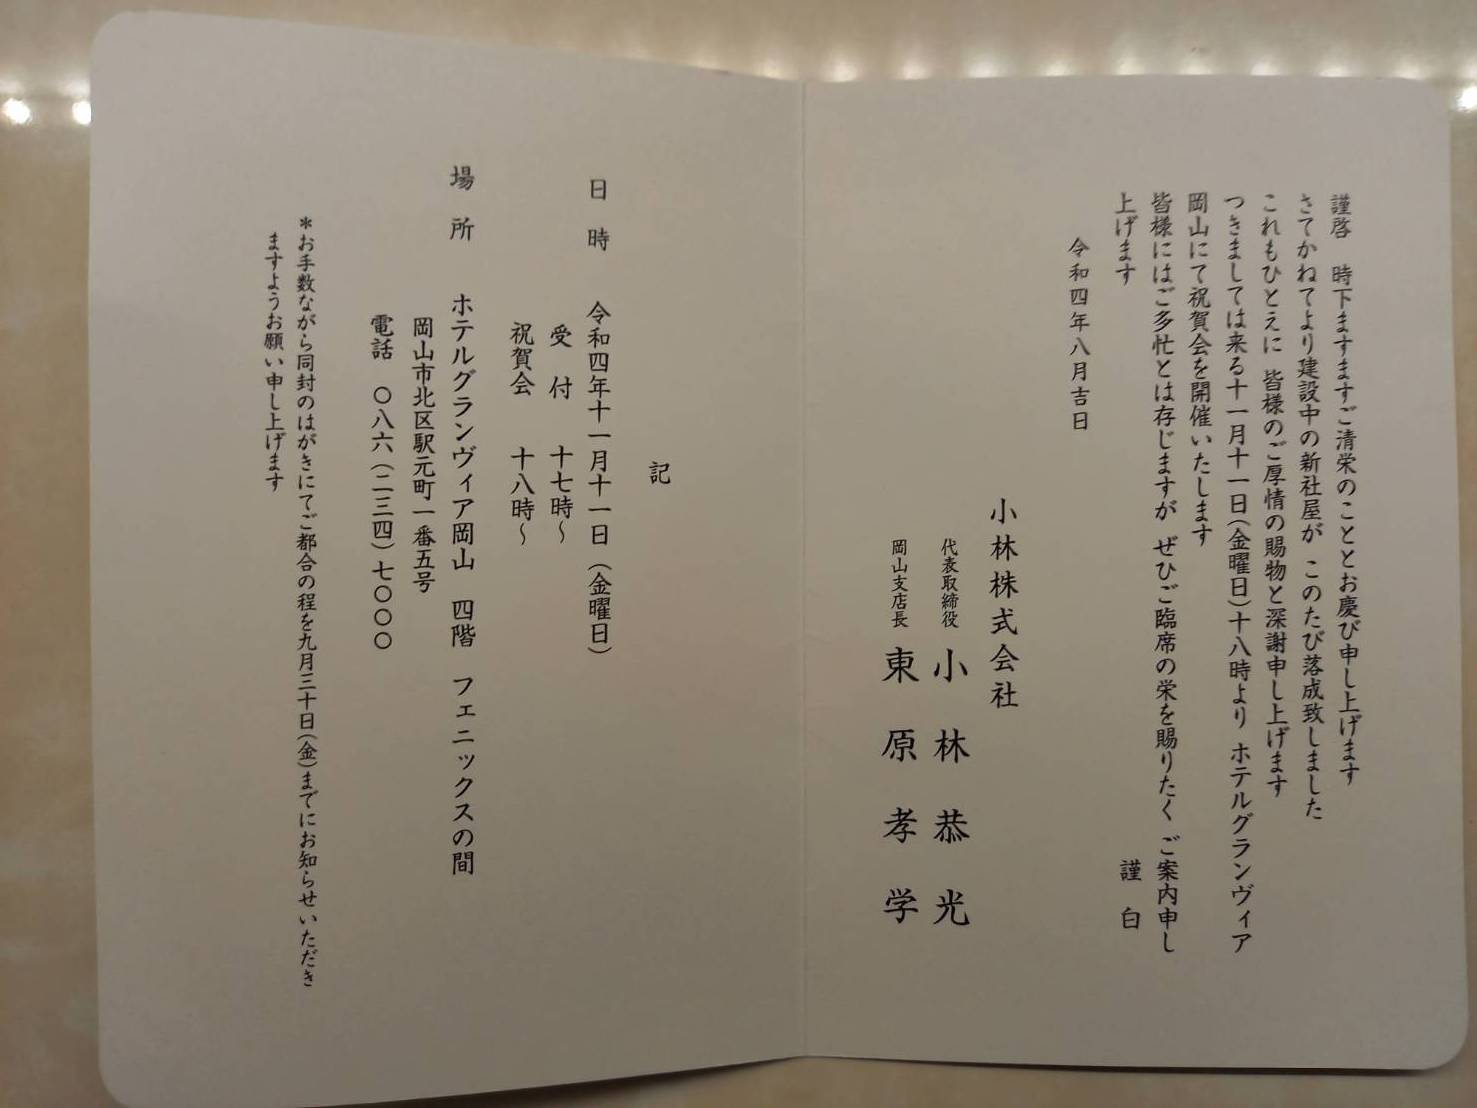 謹啓　時下ますますご清栄のこととお慶び申し上げます
さてかねてより建設中の新社屋が　このたび落成致しました
これもひとえに　皆様のご厚情の賜物と深謝申し上げます
つきましては来る十一月十一日(金曜日)十八時より　ホテルグランヴィア
岡山にて祝賀会を開催いたします
皆様にはご多忙とは存じますが　ぜひご臨席の栄を賜りたく　ご案内申し
上げます
謹白
令和四年八月吉日
小林株式会社
代表取締役　小林恭光
岡山支店長　東原孝学
記
日時　令和四年十一月十一日(金曜日)
受付　十七時〜
祝賀会　十八時〜
場所　ホテルグランヴィア岡山　四階　フェニックスの間
岡山市北区駅元町一番五号
電話　〇八六(二三四)七〇〇〇
＊お手数ながら同封のはがきにてご都合の程を九月三十日(金)までにお知らせいただき
ますようお願い申し上げます